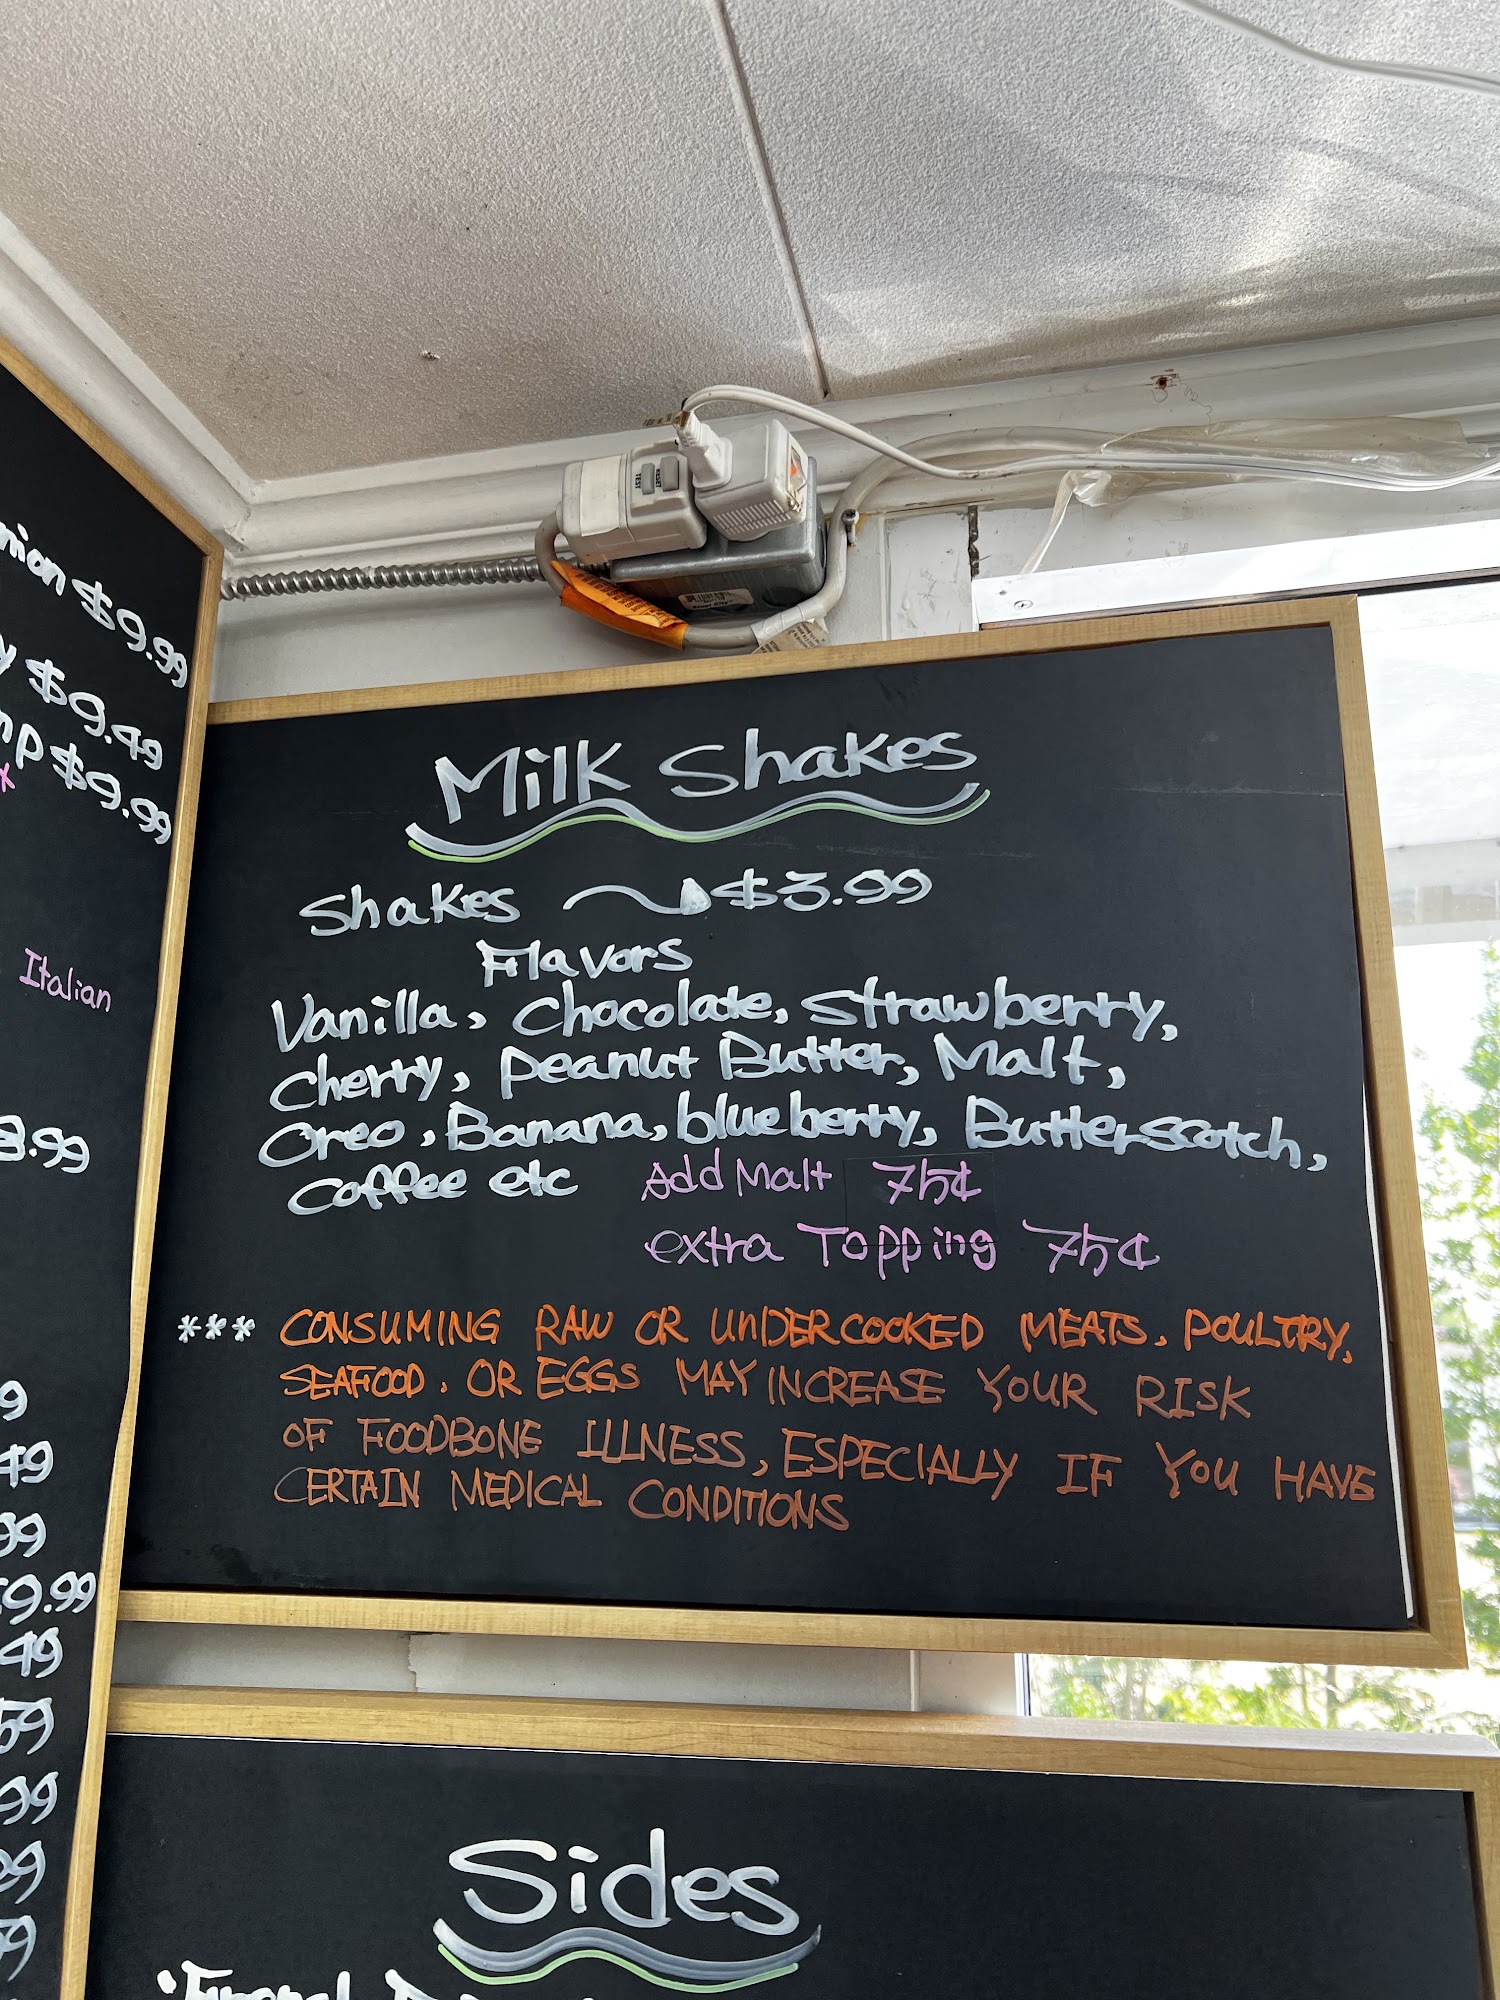 TEST
RESET
$9.99
$9.49
$9.99
Italian
Milk Shakes
Shakes $3.99
Flavors
Vanilla, Chocolate, Strawberry,
Cherry, Peanut Butter, Malt,
Oreo, Banana, blueberry, Butterscotch,
Coffee etc Add Malt 75¢
extra Topping 75¢
*** CONSUMING RAW OR UnDERCOOKED MEATS, POULTRY,
SEAFOOD, OR EGGS MAY INCREASE YOUR RISK
OF FOODBONE ILLNESS, ESPECIALLY IF YOU HAVE
CERTAIN MEDICAL CONDITIONS
Sides